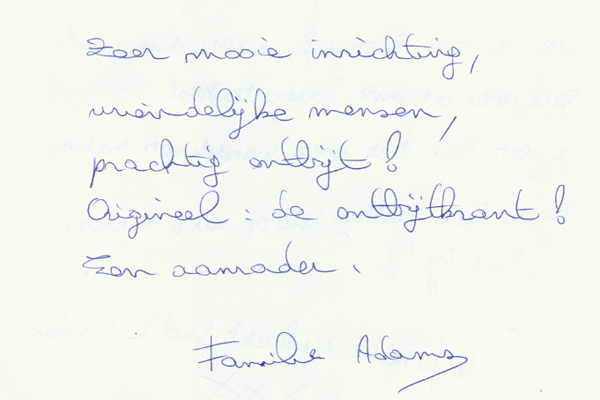 Zeer mooie inrichting,
vriendelijke mensen,
prachtig ontbijt!
Origineel : de ontbijtkrant!
Een aanrader.
Familie Adams